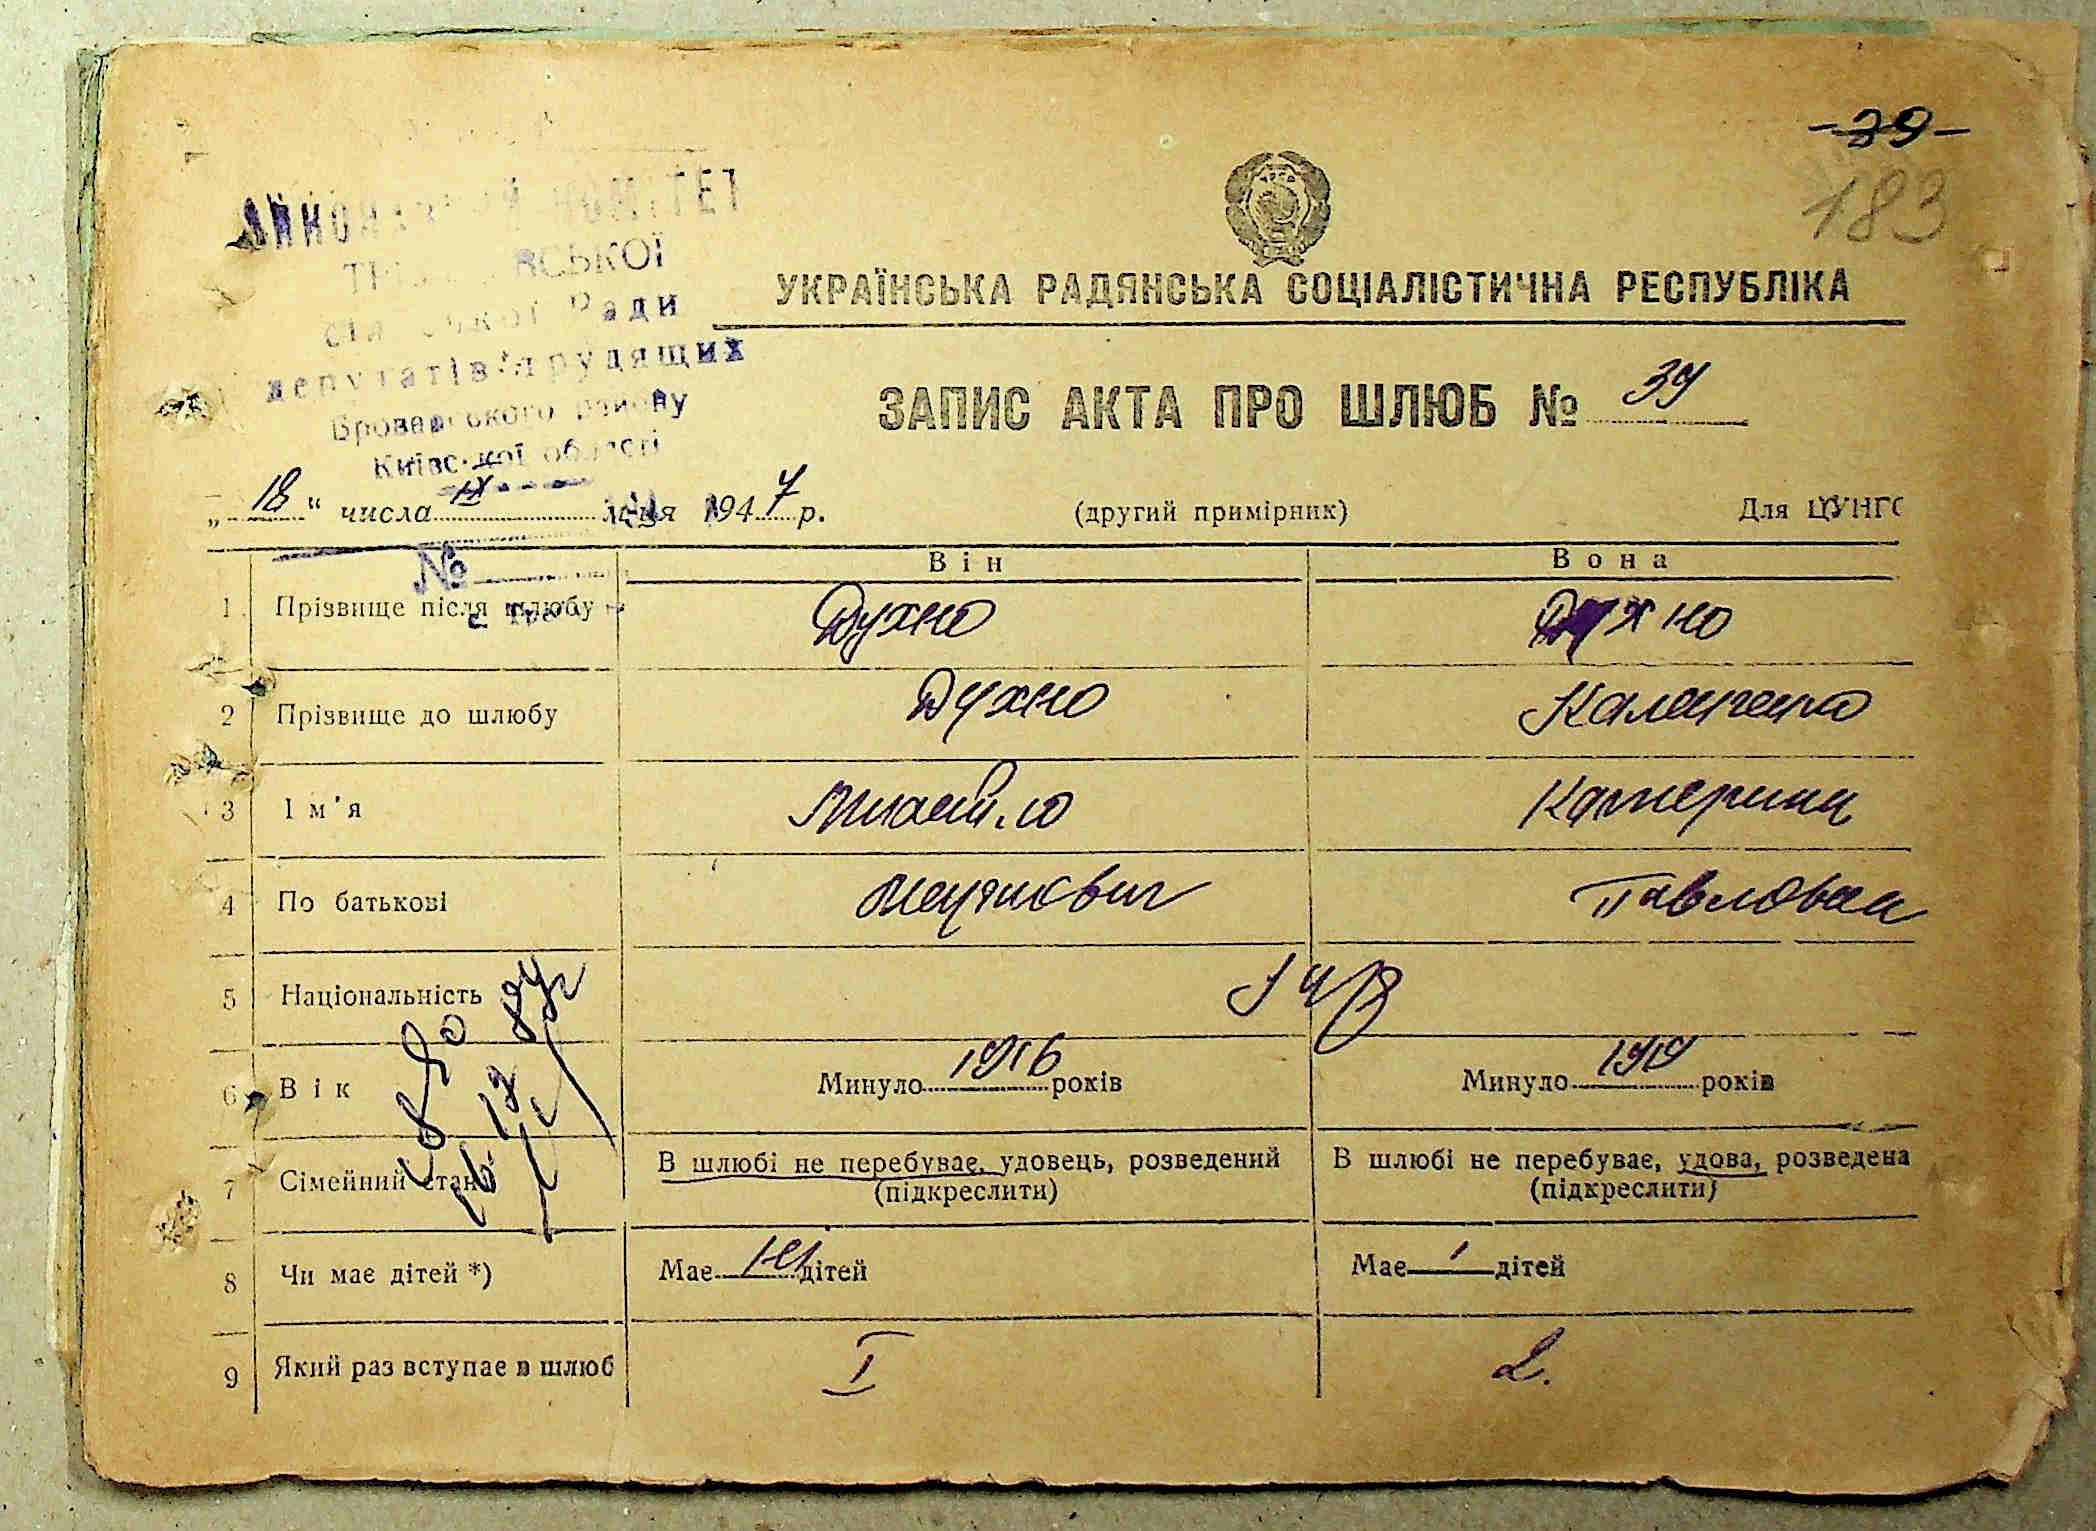 -39-
183
КОМІТЕТ
Ради
депутатів трудящих
Броварського району
Київської області
УКРАЇНСЬКА РАДЯНСЬКА СОЦІАЛІСТИЧНА РЕСПУБЛІКА
ЗАПИС АКТА ПРО ШЛЮБ № 39
„18“ числа IX м-ця 1947 р. (другий примірник) Для ЦУНГО
№
Він Вона
1 Прізвище після шлюбу Духно Духно
2 Прізвище до шлюбу Духно
3 Ім'я Михайло Катерина
4 По батькові Павловна
5 Національність укр
6 Вік Минуло 1916 років Минуло 1919 років
7 Сімейний стан В шлюбі не перебуває, удовець, розведений В шлюбі не перебуває, удова, розведена
(підкреслити) (підкреслити)
8 Чи має дітей *) Має ні дітей Має 1 дітей
9 Який раз вступає в шлюб I 2.